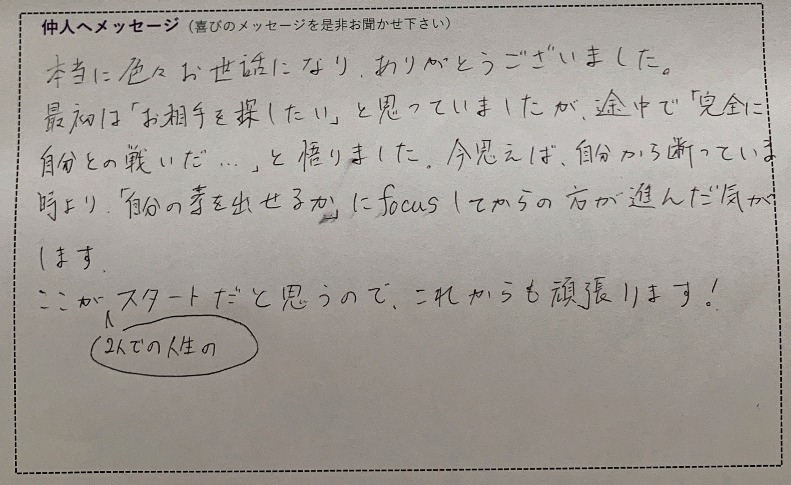 仲人へメッセージ（喜びのメッセージを是非お聞かせ下さい）
本当に色々お世話になり、ありがとうございました。
最初は「お相手を探したい」と思っていましたが、途中で「完全に
自分との戦いだ…」と悟りました。今思えば、自分から断っていま
時より、「自分の素を出せるか」にfocusしてからの方が進んだ気が
します。
ここがスタートだと思うので、これからも頑張ります！
2人での人生の